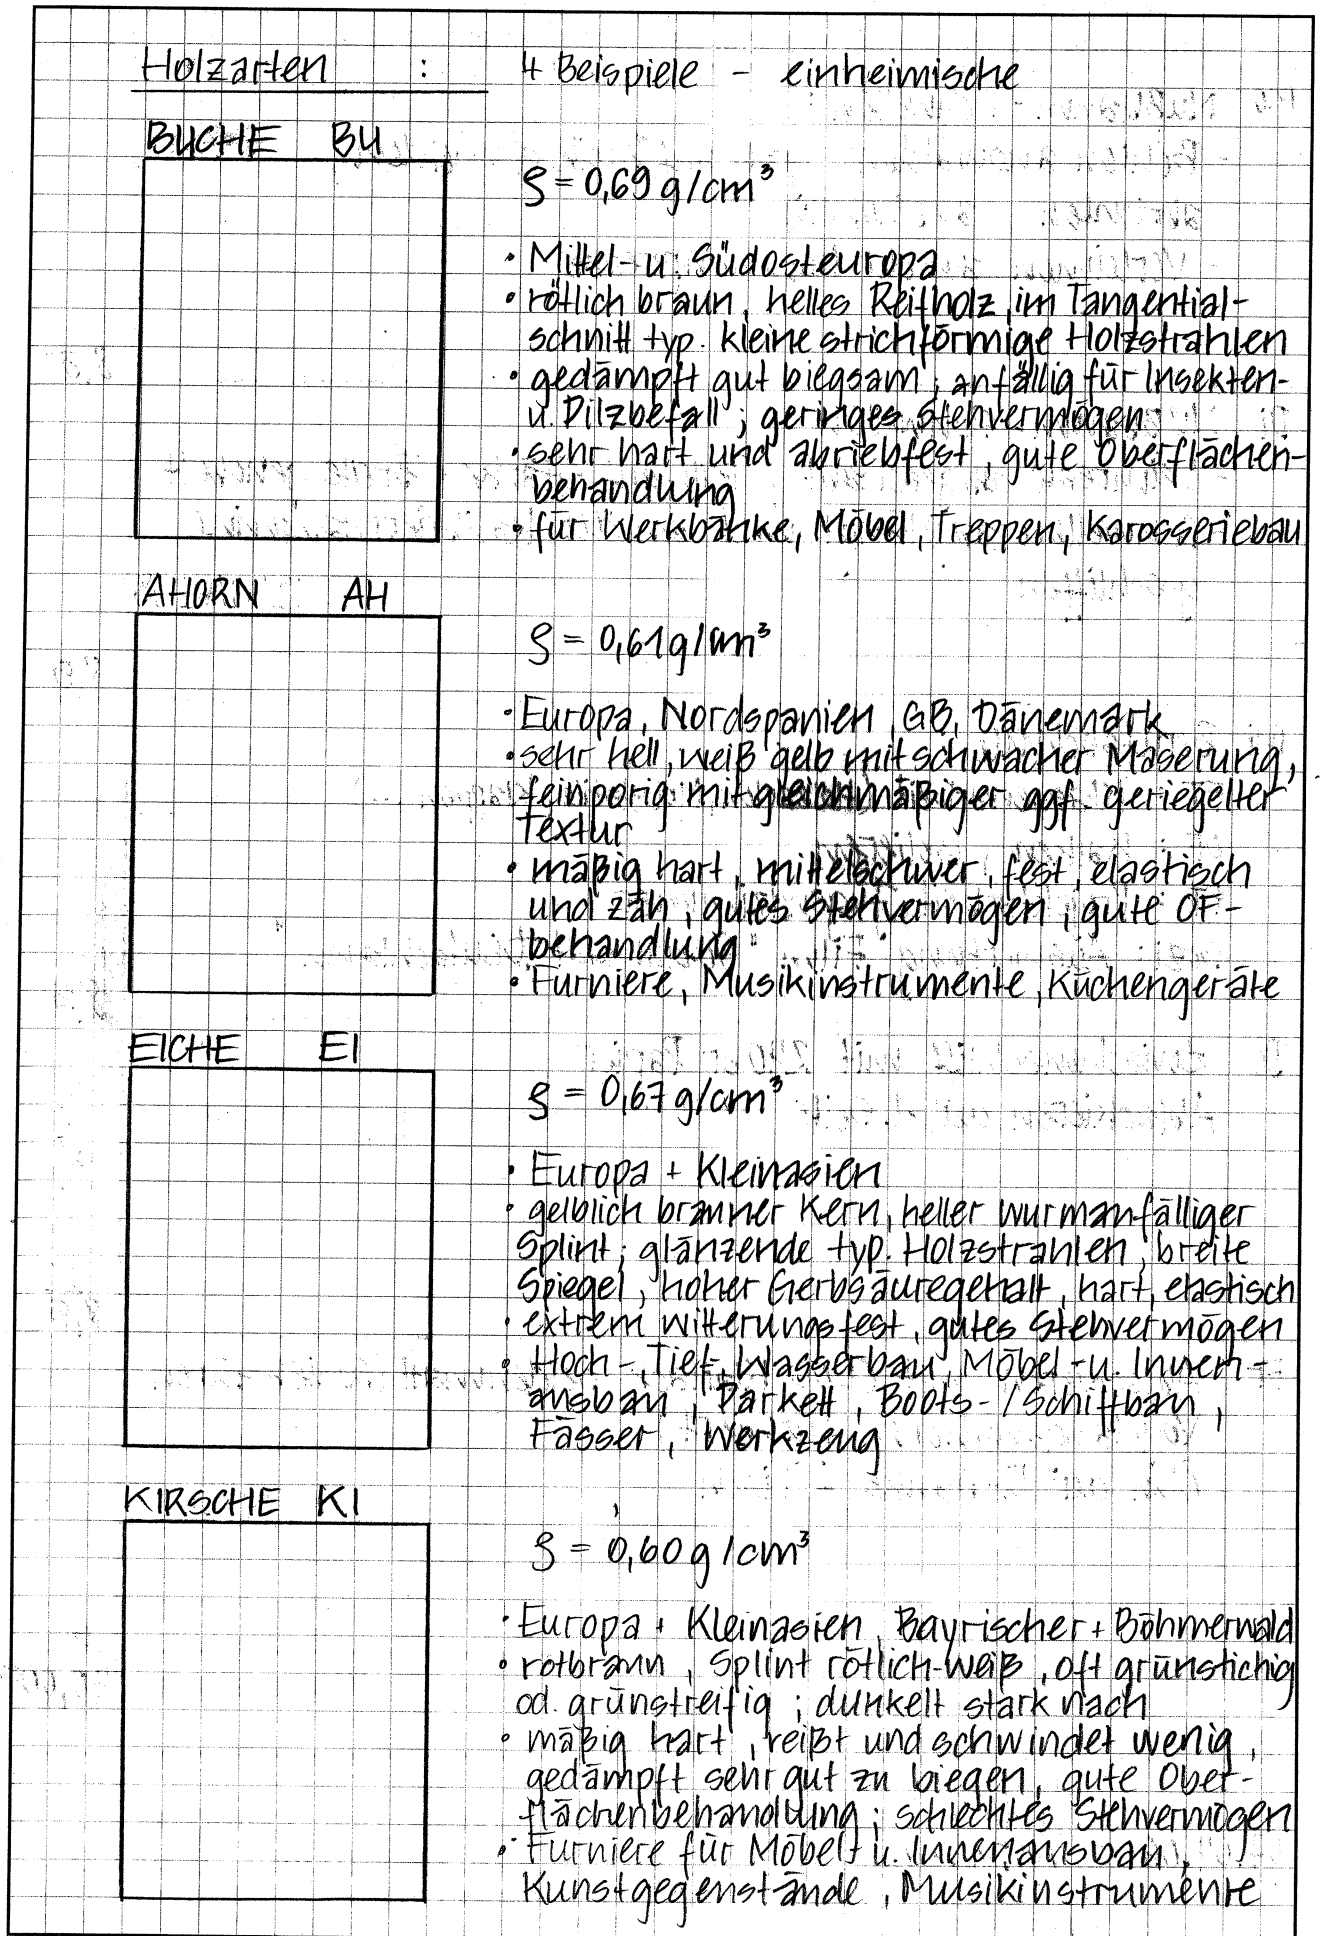 Holzarten : 4 Beispiele - einheimische
BUCHE BU
ρ = 0,69 g/cm³
• Mittel- u. Südosteuropa
• rötlich braun, helles Reifholz, im Tangential-
schnitt typ. kleine strichförmige Holzstrahlen
• gedämpft gut biegsam; anfällig für Insekten-
u. Pilzbefall; geringes Stehvermögen
• sehr hart und abriebfest, gute Oberflächen-
behandlung
• für Werkbänke, Möbel, Treppen, Karosseriebau
AHORN AH
ρ = 0,61 g/cm³
• Europa, Nordspanien, GB, Dänemark
• sehr hell, weiß gelb mit schwacher Maserung,
feinporig mit gleichmäßiger ggf. geriegelter
Textur
• mäßig hart, mittelschwer, fest, elastisch
und zäh, gutes Stehvermögen, gute OF-
behandlung
• Furniere, Musikinstrumente, Küchengeräte
EICHE EI
ρ = 0,67 g/cm³
• Europa + Kleinasien
• gelblich brauner Kern, heller wurmanfälliger
Splint; glänzende typ. Holzstrahlen, breite
Spiegel, hoher Gerbsäuregehalt, hart, elastisch
• extrem witterungsfest, gutes Stehvermögen
• Hoch-, Tief-, Wasserbau, Möbel- u. Innen-
ausbau, Parkett, Boots-/Schiffbau,
Fässer, Werkzeug
KIRSCHE KI
ρ = 0,60 g/cm³
• Europa + Kleinasien, Bayrischer + Böhmerwald
• rotbraun, Splint rötlich-weiß, oft grünstichig
od. grünstreifig; dunkelt stark nach
• mäßig hart, reißt und schwindet wenig,
gedämpft sehr gut zu biegen, gute Ober-
flächenbehandlung; schlechtes Stehvermögen
• Furniere für Möbel- u. Innenausbau,
Kunstgegenstände, Musikinstrumente